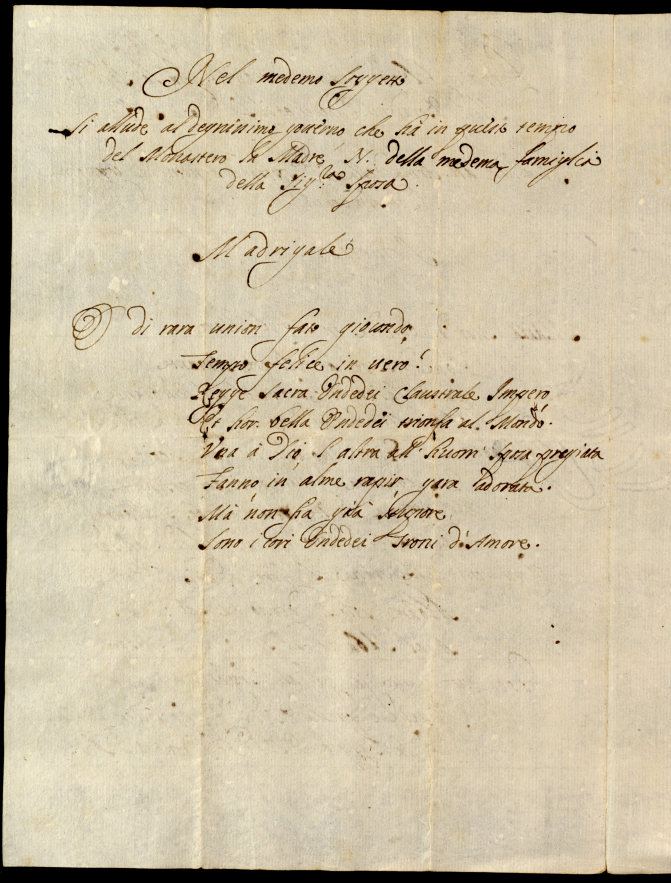 Nel medemo soggetto
Si allude al degnissimo governo che hà in questo tempo
del Monastero la Madre N. della medema famiglia
della Sig.ra Sposa.
Madrigale
O di rara union fato giocondo,
Tempo felice in vero!
Regge sacra Ondedei Claustrale Impero,
Et hor bella Ondedei trionfa al Mondo.
Una à Dio, l'altra all' huom Sposa pregiata
Fanno in alme rapir gara adorata.
Mà non hà già
Sono i cori Ondedei Troni d'Amore.